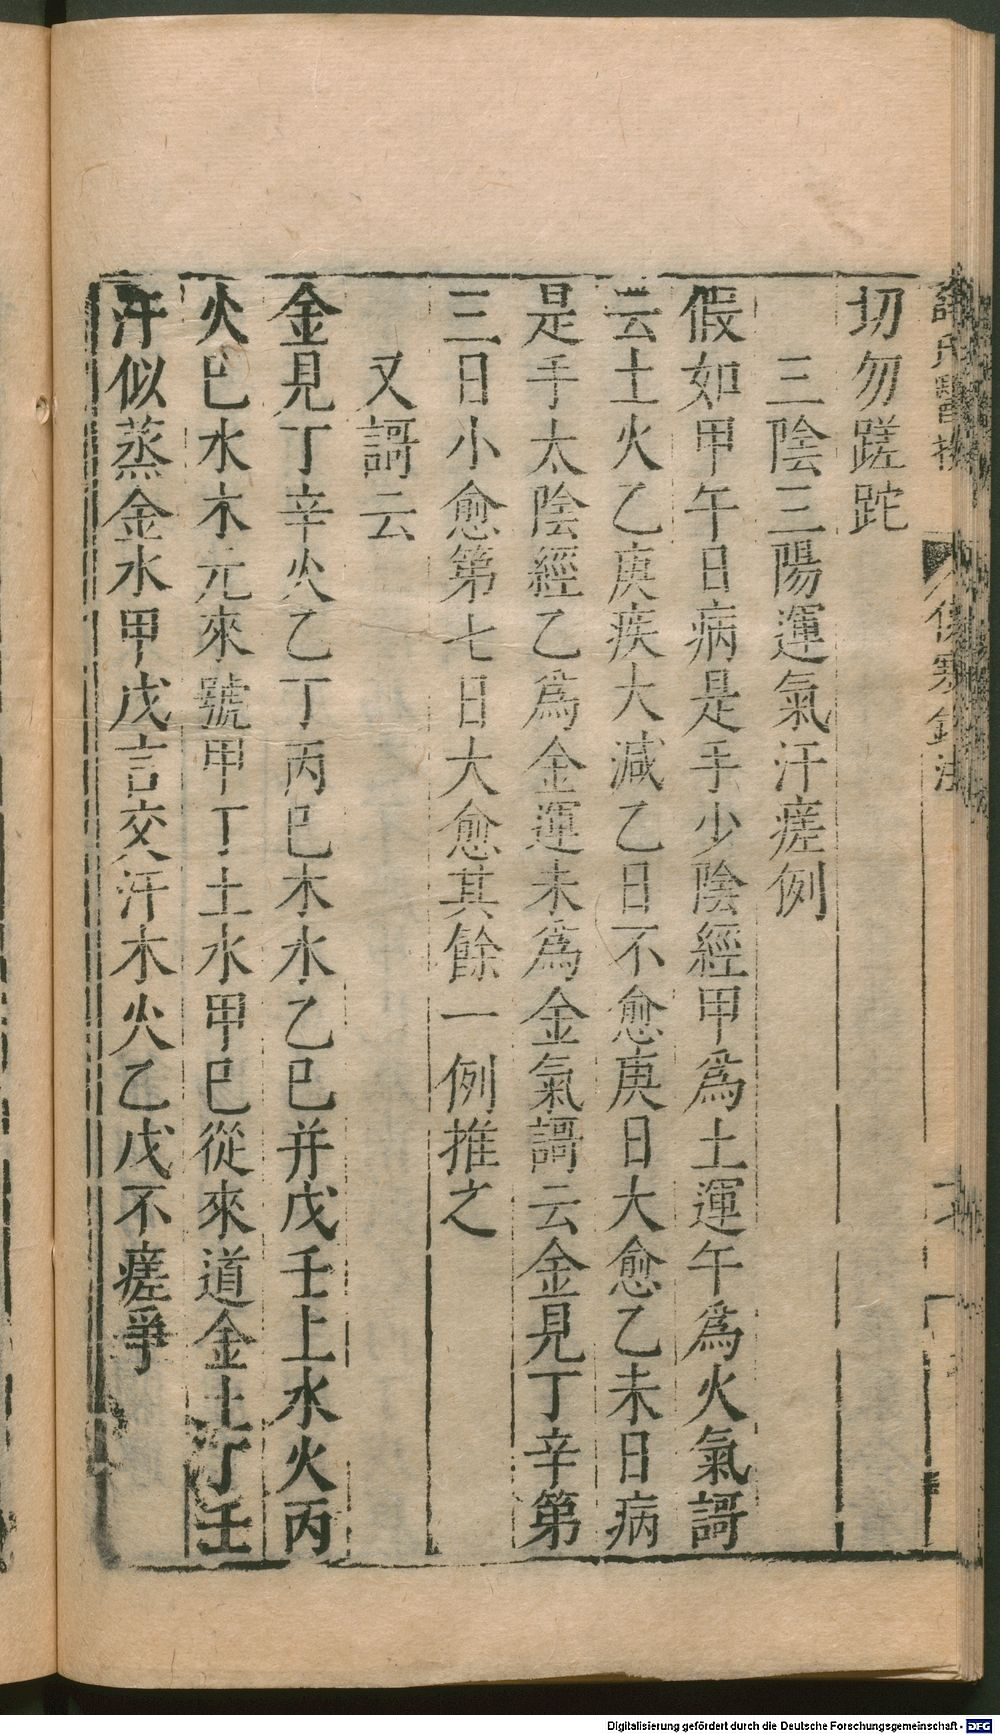 切勿蹉跎
三陰三陽運氣汗瘥例
假如甲午日病是手少陰經甲爲土運午爲火氣謌
云土火乙庚疾大減乙日不愈庚日大愈乙未日病
是手太陰經乙爲金運未爲金氣謌云金見丁辛第
三日小愈第七日大愈其餘一例推之
又謌云
金見丁辛火乙丁丙巳木水乙巳并戊壬上水火丙
火巳水木元來號甲丁土水甲巳從來道金土丁壬
汗似蒸金水甲戊言交汗木火乙戊不瘥爭
Digitalisierung gefördert durch die Deutsche Forschungsgemeinschaft - DFG